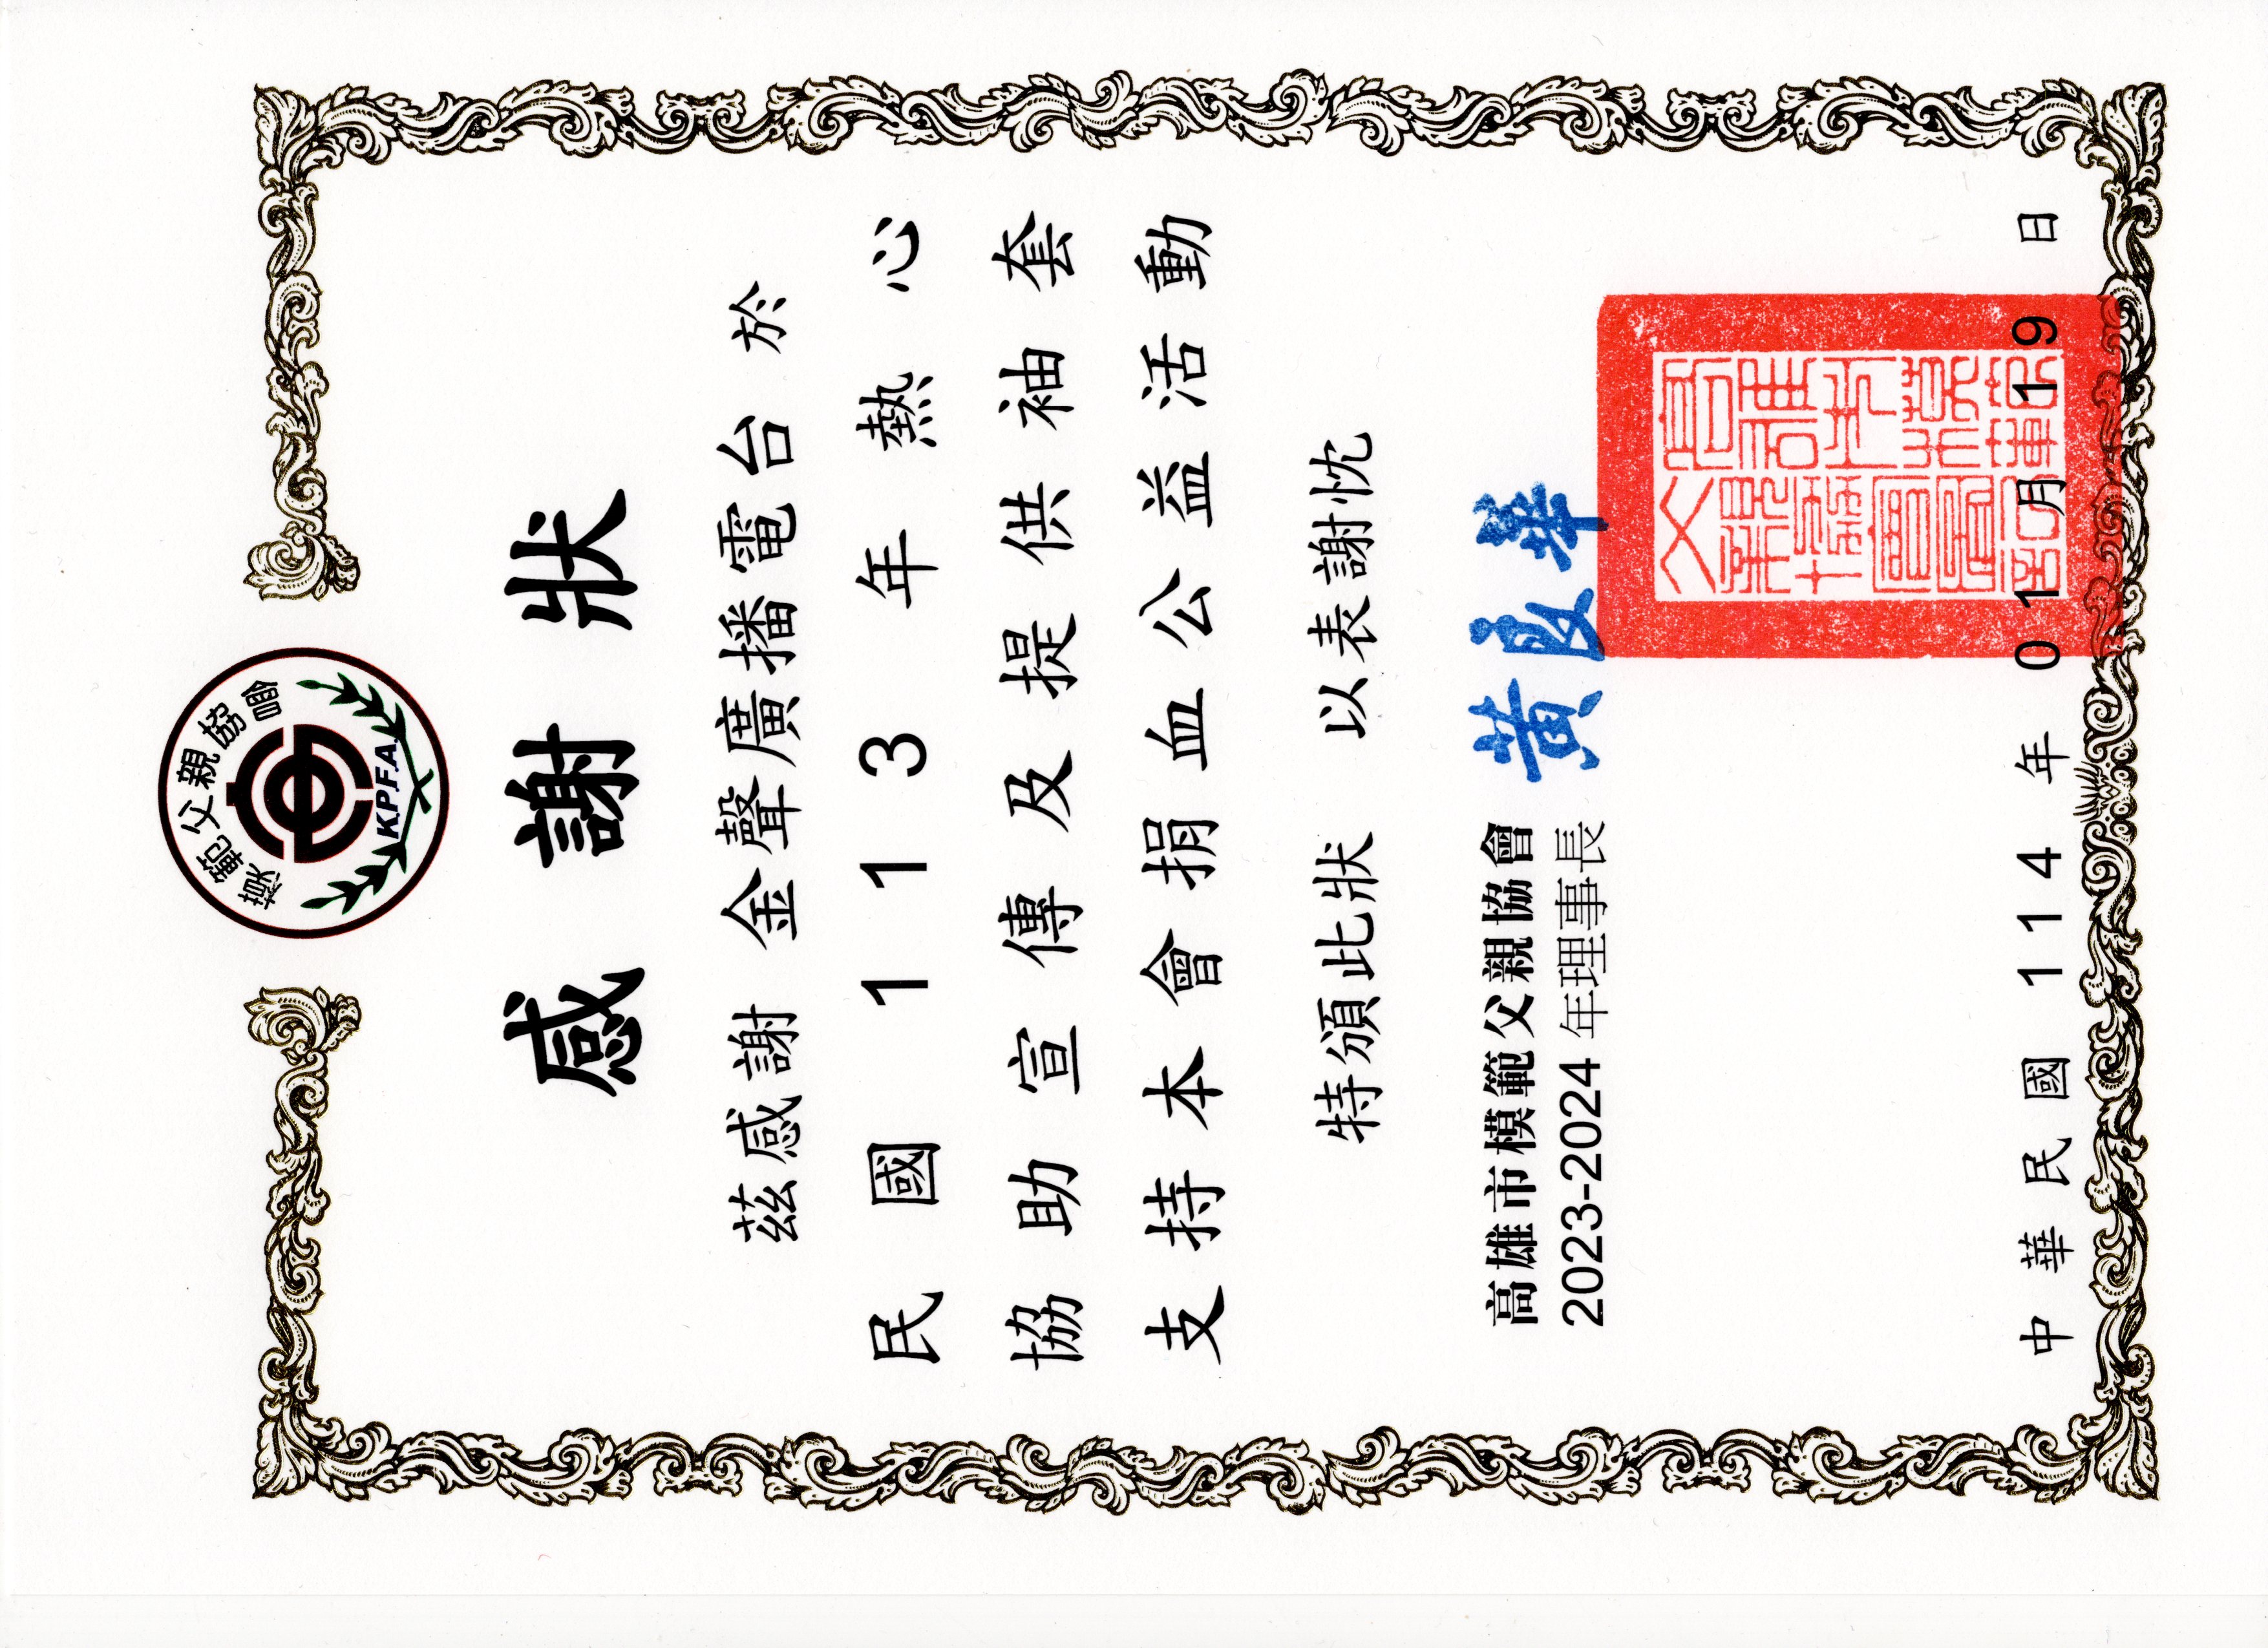 模範父親協會
K.P.F.A.
感謝狀
茲感謝 金聲廣播電台 於
民國 113 年熱心
協助宣傳及提供袖套
支持本會捐血公益活動
特頒此狀 以表謝忱
高雄市模範父親協會
2023-2024 年理事長
黃啟華
中華民國 114 年 01 月 19 日